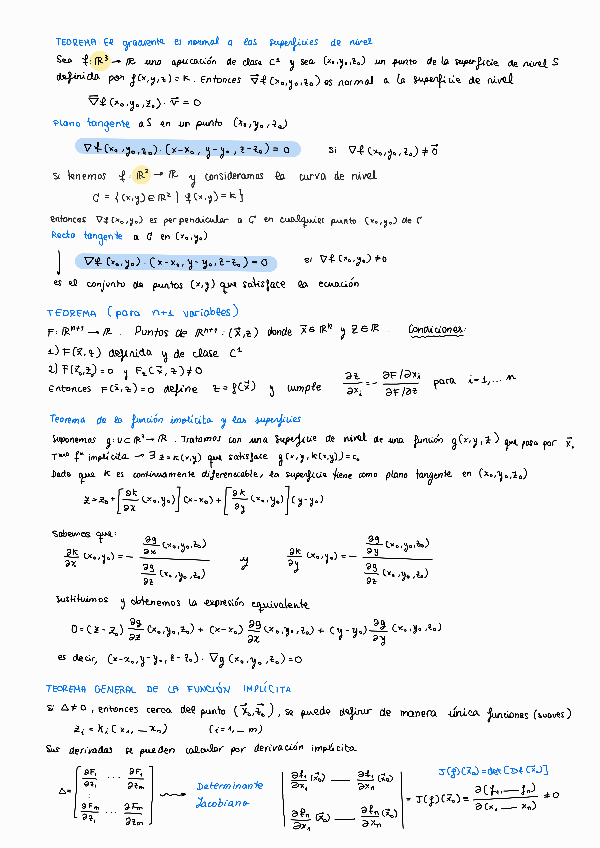 TEOREMA El gradiente es normal a las superficies de nivel
Sea f: ℝ³ → ℝ una aplicación de clase C¹ y sea (x₀,y₀,z₀) un punto de la superficie de nivel S
definida por f(x,y,z)=k. Entonces ∇f(x₀,y₀,z₀) es normal a la superficie de nivel
∇f(x₀,y₀,z₀)·v⃗ = 0
Plano tangente a S en un punto (x₀,y₀,z₀)
∇f(x₀,y₀,z₀)·(x-x₀, y-y₀, z-z₀) = 0   si ∇f(x₀,y₀,z₀) ≠ 0⃗
Si tenemos f: ℝ² → ℝ y consideramos la curva de nivel
C = {(x,y) ∈ ℝ² | f(x,y) = k}
entonces ∇f(x₀,y₀) es perpendicular a C en cualquier punto (x₀,y₀) de C
Recta tangente a C en (x₀,y₀)
∇f(x₀,y₀)·(x-x₀, y-y₀, z-z₀) = 0   si ∇f(x₀,y₀) ≠ 0
es el conjunto de puntos (x,y) que satisface la ecuación
TEOREMA (para n+1 variables)
F: ℝⁿ⁺¹ → ℝ. Puntos de ℝⁿ⁺¹: (x⃗,z) donde x⃗ ∈ ℝⁿ y z ∈ ℝ. Condiciones:
1) F(x⃗,z) definida y de clase C¹
2) F(x⃗₀,z₀) = 0 y F_z(x⃗,z) ≠ 0
Entonces F(x⃗,z) = 0 define z = f(x⃗) y cumple ∂z/∂xᵢ = - (∂F/∂xᵢ)/(∂F/∂z) para i=1,... n
Teorema de la función implícita y las superficies
Suponemos g: U⊂ℝ³→ℝ. Tratamos con una superficie de nivel de una función g(x,y,z) que pasa por x⃗₀
Tᵐᵃ fⁿ implícita → ∃ z=k(x,y) que satisface g(x,y,k(x,y))=c₀
Dado que k es continuamente diferenciable, la superficie tiene como plano tangente en (x₀,y₀,z₀)
z = z₀ + [∂k/∂x (x₀,y₀)](x-x₀) + [∂k/∂y (x₀,y₀)](y-y₀)
Sabemos que:
∂k/∂x (x₀,y₀) = - (∂g/∂x (x₀,y₀,z₀))/(∂g/∂z (x₀,y₀,z₀))   y   ∂k/∂y (x₀,y₀) = - (∂g/∂y (x₀,y₀,z₀))/(∂g/∂z (x₀,y₀,z₀))
Sustituimos y obtenemos la expresión equivalente
0 = (z-z₀) ∂g/∂z (x₀,y₀,z₀) + (x-x₀) ∂g/∂x (x₀,y₀,z₀) + (y-y₀) ∂g/∂y (x₀,y₀,z₀)
es decir, (x-x₀, y-y₀, z-z₀)·∇g(x₀,y₀,z₀) = 0
TEOREMA GENERAL DE LA FUNCIÓN IMPLÍCITA
Si Δ≠0, entonces cerca del punto (x⃗₀,z⃗₀), se puede definir de manera única funciones (suaves)
zᵢ = kᵢ(x₁, … xₙ)   (i=1, … m)
Sus derivadas se pueden calcular por derivación implícita
Δ = [∂F₁/∂z₁ ... ∂F₁/∂zₘ ; ⋮ ; ∂Fₘ/∂z₁ ... ∂Fₘ/∂zₘ] ⟶ Determinante Jacobiano
J(f)(x⃗₀) = det [Df(x⃗₀)]
| ∂f₁/∂x₁ (x⃗₀) … ∂f₁/∂xₙ (x⃗₀) ; ∂fₙ/∂x₁ (x⃗₀) … ∂fₙ/∂xₙ (x⃗₀) | = J(f)(x⃗₀) = ∂(f₁, … fₙ)/∂(x₁, … xₙ) ≠ 0